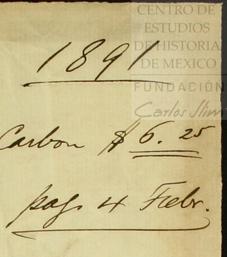 CENTRO DE
ESTUDIOS
DE HISTORIA
DE MEXICO
FUNDACIÓN
Carlos Slim
1891
Carbon $6.25
pag. 4 Febr.